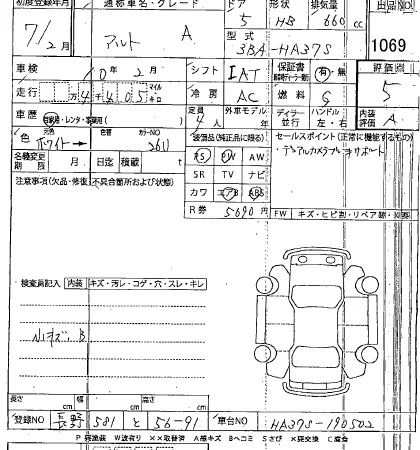 初度登録年月 通称車名・グレード ドア 形状 排気量 出品NO
7/2月 アルト A 5 HB 660 cc 1069
型式 3BA-HA37S
車検 10年 2月 シフト IAT 保証書 有・無 評価点 5
走行 万 4千405 マイル キロ 冷房 AC 燃料 G
車歴 自家用・レンタ・事業用 定員 4人 外車モデル 年 ディーラー・並行 ハンドル 左・右 内装評価 A
色 元色 ホワイト 色替 カラーNO 26U 装備品(純正品に限る) セールスポイント(正常に機能するもの)
PS PW AW
名義変更期限 月 日迄 積載 t SR TV ナビ
注意事項(欠品・修復、不具合箇所および状態) カワ エアB ABS
R券 5690円 FW キズ・ヒビ割・リペア跡・X要
検査員記入 内装 キズ・汚レ・コゲ・穴・スレ・キレ
小キズ B
長さ cm 幅 cm 高さ cm
登録NO 長野 581 と 56-91 車台NO HA37S-190502
P要塗装 W波有り XX取替済 A線キズ Bヘコミ Sさび X要交換 C腐食